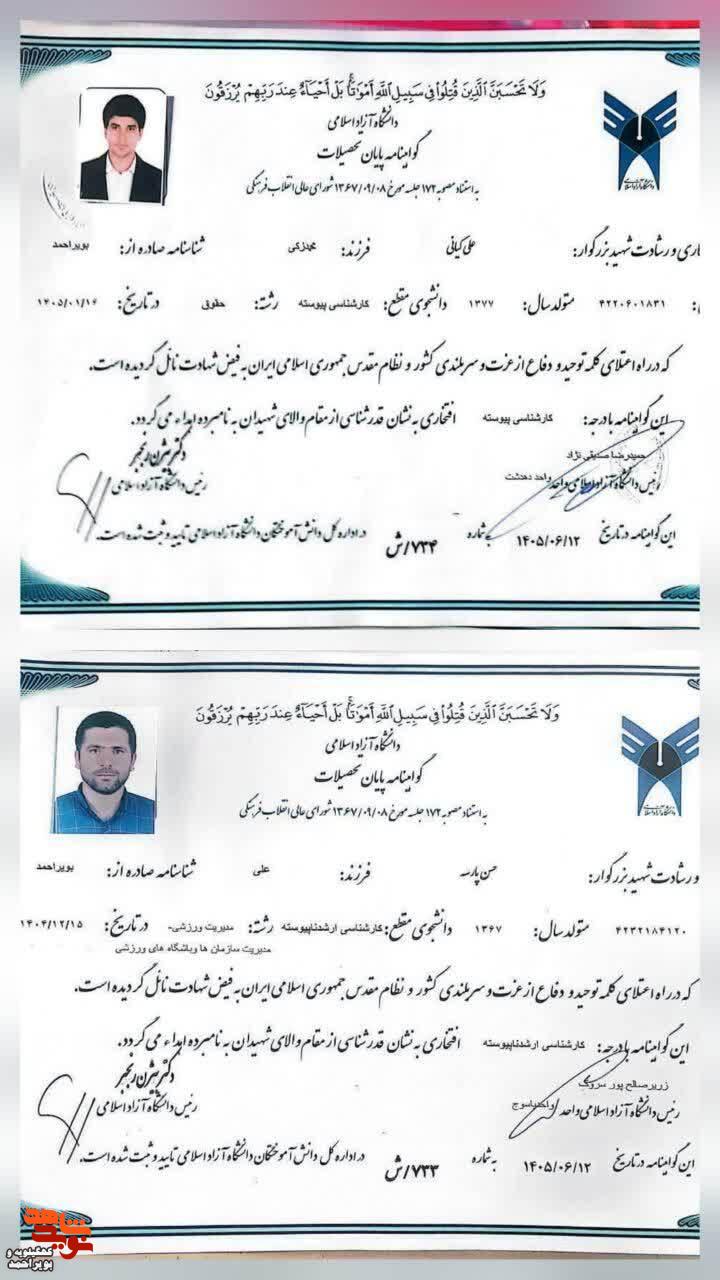 وَلَا تَحْسَبَنَّ الَّذِينَ قُتِلُوا فِي سَبِيلِ اللَّهِ أَمْوَاتًا بَلْ أَحْيَاءٌ عِندَ رَبِّهِمْ يُرْزَقُونَ
دانشگاه آزاد اسلامی
گواهینامه پایان تحصیلات
به استناد مصوبه ۱۷۲ جلسه مورخ ۱۳۶۷/۰۹/۰۸ شورای عالی انقلاب فرهنگی
دانشگاه آزاد اسلامی
اری و رشادت شهید بزرگوار: علی کیانی فرزند: محمدزکی شناسنامه صادره از: بویراحمد
۴۲۲۰۶۰۱۸۳۱ متولد سال: ۱۳۷۷ دانشجوی مقطع: کارشناسی پیوسته رشته: حقوق در تاریخ: ۱۴۰۵/۰۱/۱۶
که در راه اعتلای کلمه توحید و دفاع از عزت و سربلندی کشور و نظام مقدس جمهوری اسلامی ایران به فیض شهادت نائل گردیده است.
این گواهینامه با درجه: کارشناسی پیوسته افتخاری به نشان قدرشناسی از مقام والای شهیدان به نامبرده اهداء می گردد.
حمیدرضا صدیقی نژاد دکتر بیژن رنجبر
رئیس دانشگاه آزاد اسلامی واحد واحد دهدشت رئیس دانشگاه آزاد اسلامی
این گواهینامه در تاریخ ۱۴۰۵/۰۶/۱۲ به شماره ۷۳۴/ش در اداره کل دانش آموختگان دانشگاه آزاد اسلامی تایید و ثبت شده است.
وَلَا تَحْسَبَنَّ الَّذِينَ قُتِلُوا فِي سَبِيلِ اللَّهِ أَمْوَاتًا بَلْ أَحْيَاءٌ عِندَ رَبِّهِمْ يُرْزَقُونَ
دانشگاه آزاد اسلامی
گواهینامه پایان تحصیلات
به استناد مصوبه ۱۷۲ جلسه مورخ ۱۳۶۷/۰۹/۰۸ شورای عالی انقلاب فرهنگی
دانشگاه آزاد اسلامی
و رشادت شهید بزرگوار: حسن پارسه فرزند: علی شناسنامه صادره از: بویراحمد
۴۲۳۲۱۸۴۱۲۰ متولد سال: ۱۳۶۷ دانشجوی مقطع: کارشناسی ارشدناپیوسته رشته: مدیریت ورزشی- در تاریخ: ۱۴۰۴/۱۲/۱۵
مدیریت سازمان ها وباشگاه های ورزشی
که در راه اعتلای کلمه توحید و دفاع از عزت و سربلندی کشور و نظام مقدس جمهوری اسلامی ایران به فیض شهادت نائل گردیده است.
این گواهینامه با درجه: کارشناسی ارشدناپیوسته افتخاری به نشان قدرشناسی از مقام والای شهیدان به نامبرده اهداء می گردد.
زریرصالح پور سروک دکتر بیژن رنجبر
رئیس دانشگاه آزاد اسلامی واحد واحدیاسوج رئیس دانشگاه آزاد اسلامی
این گواهینامه در تاریخ ۱۴۰۵/۰۶/۱۲ به شماره ۷۳۳/ش در اداره کل دانش آموختگان دانشگاه آزاد اسلامی تایید و ثبت شده است.
نوید شاهد
کهگیلویه و
بویراحمد